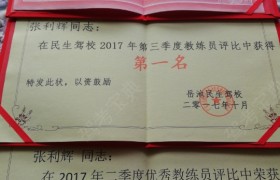 张利辉同志：
在民生驾校2017年第三季度教练员评比中获得
第一名
特发此状，以资鼓励
岳池民生驾校
二零一七年十月
张利辉 同志：
在 2017 年二季度优秀教练员评比中荣获